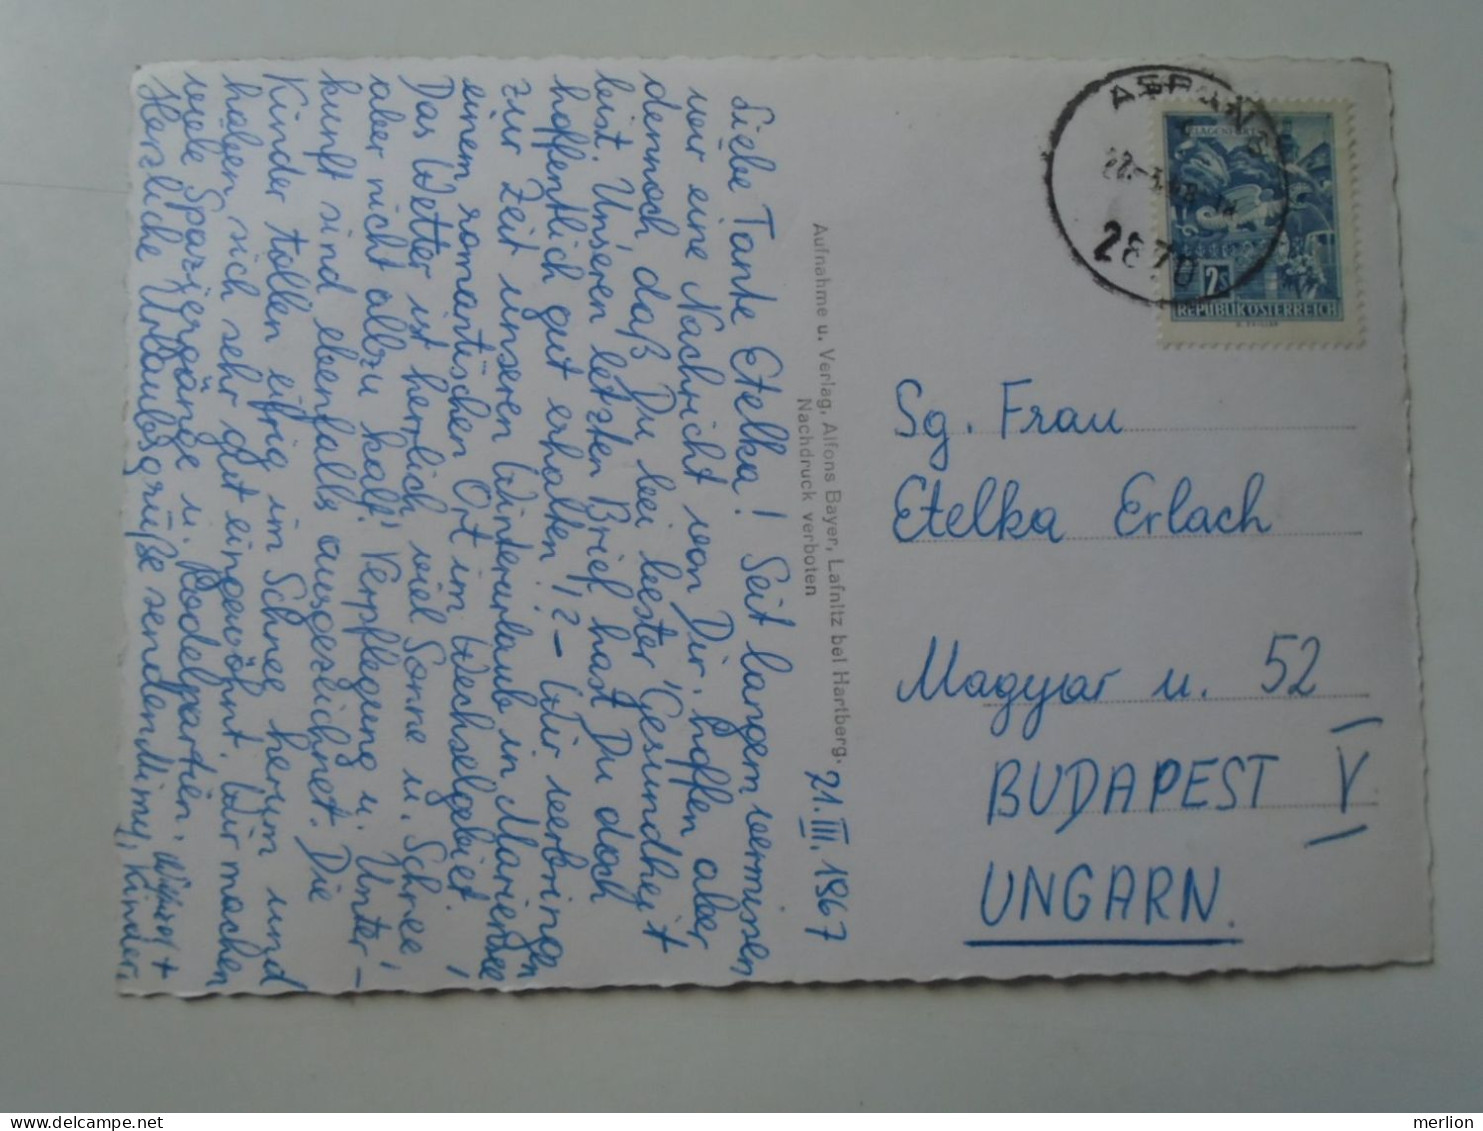 21. III. 1967
Liebe Tante Etelka! Seit langem vermissen
wir eine Nachricht von Dir, hoffen aber
dennoch, daß Du bei bester Gesundheit
bist. Unseren letzten Brief hast Du doch
hoffentlich gut erhalten!? – Wir verbringen
zur Zeit unseren Winterurlaub in Mariensee,
einem romantischen Ort im Wechselgebiet.
Das Wetter ist herrlich, viel Sonne u. Schnee,
aber nicht allzu kalt. Verpflegung u. Unter-
kunft sind ebenfalls ausgezeichnet. Die
Kinder tollen eifrig im Schnee herum und
haben sich sehr gut eingewöhnt. Wir machen
viele Spaziergänge u. Rodelpartien.
Herzliche Urlaubsgrüße senden Mimy, Kinder
Aufnahme u. Verlag, Alfons Bayer, Lafnitz bei Hartberg.
Nachdruck verboten
ASPANG
2870
KLAGENFURT
2S
REPUBLIK ÖSTERREICH
Sg. Frau
Etelka Erlach
Magyar u. 52
BUDAPEST V
UNGARN.
merlion